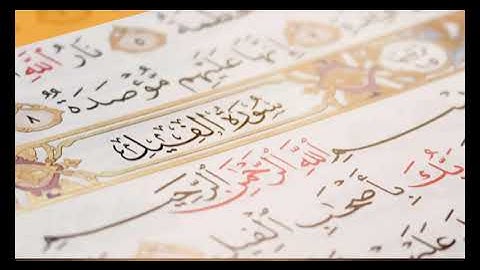 ٥ نَارُ ٱللَّهِ
إِنَّهَا عَلَيْهِم مُّؤْصَدَةٌ ٨
سُورَةُ ٱلْفِيلِ
ٱللَّهِ ٱلرَّحْمَٰنِ ٱلرَّحِيمِ
رَبُّكَ بِأَصْحَٰبِ ٱلْفِيلِ